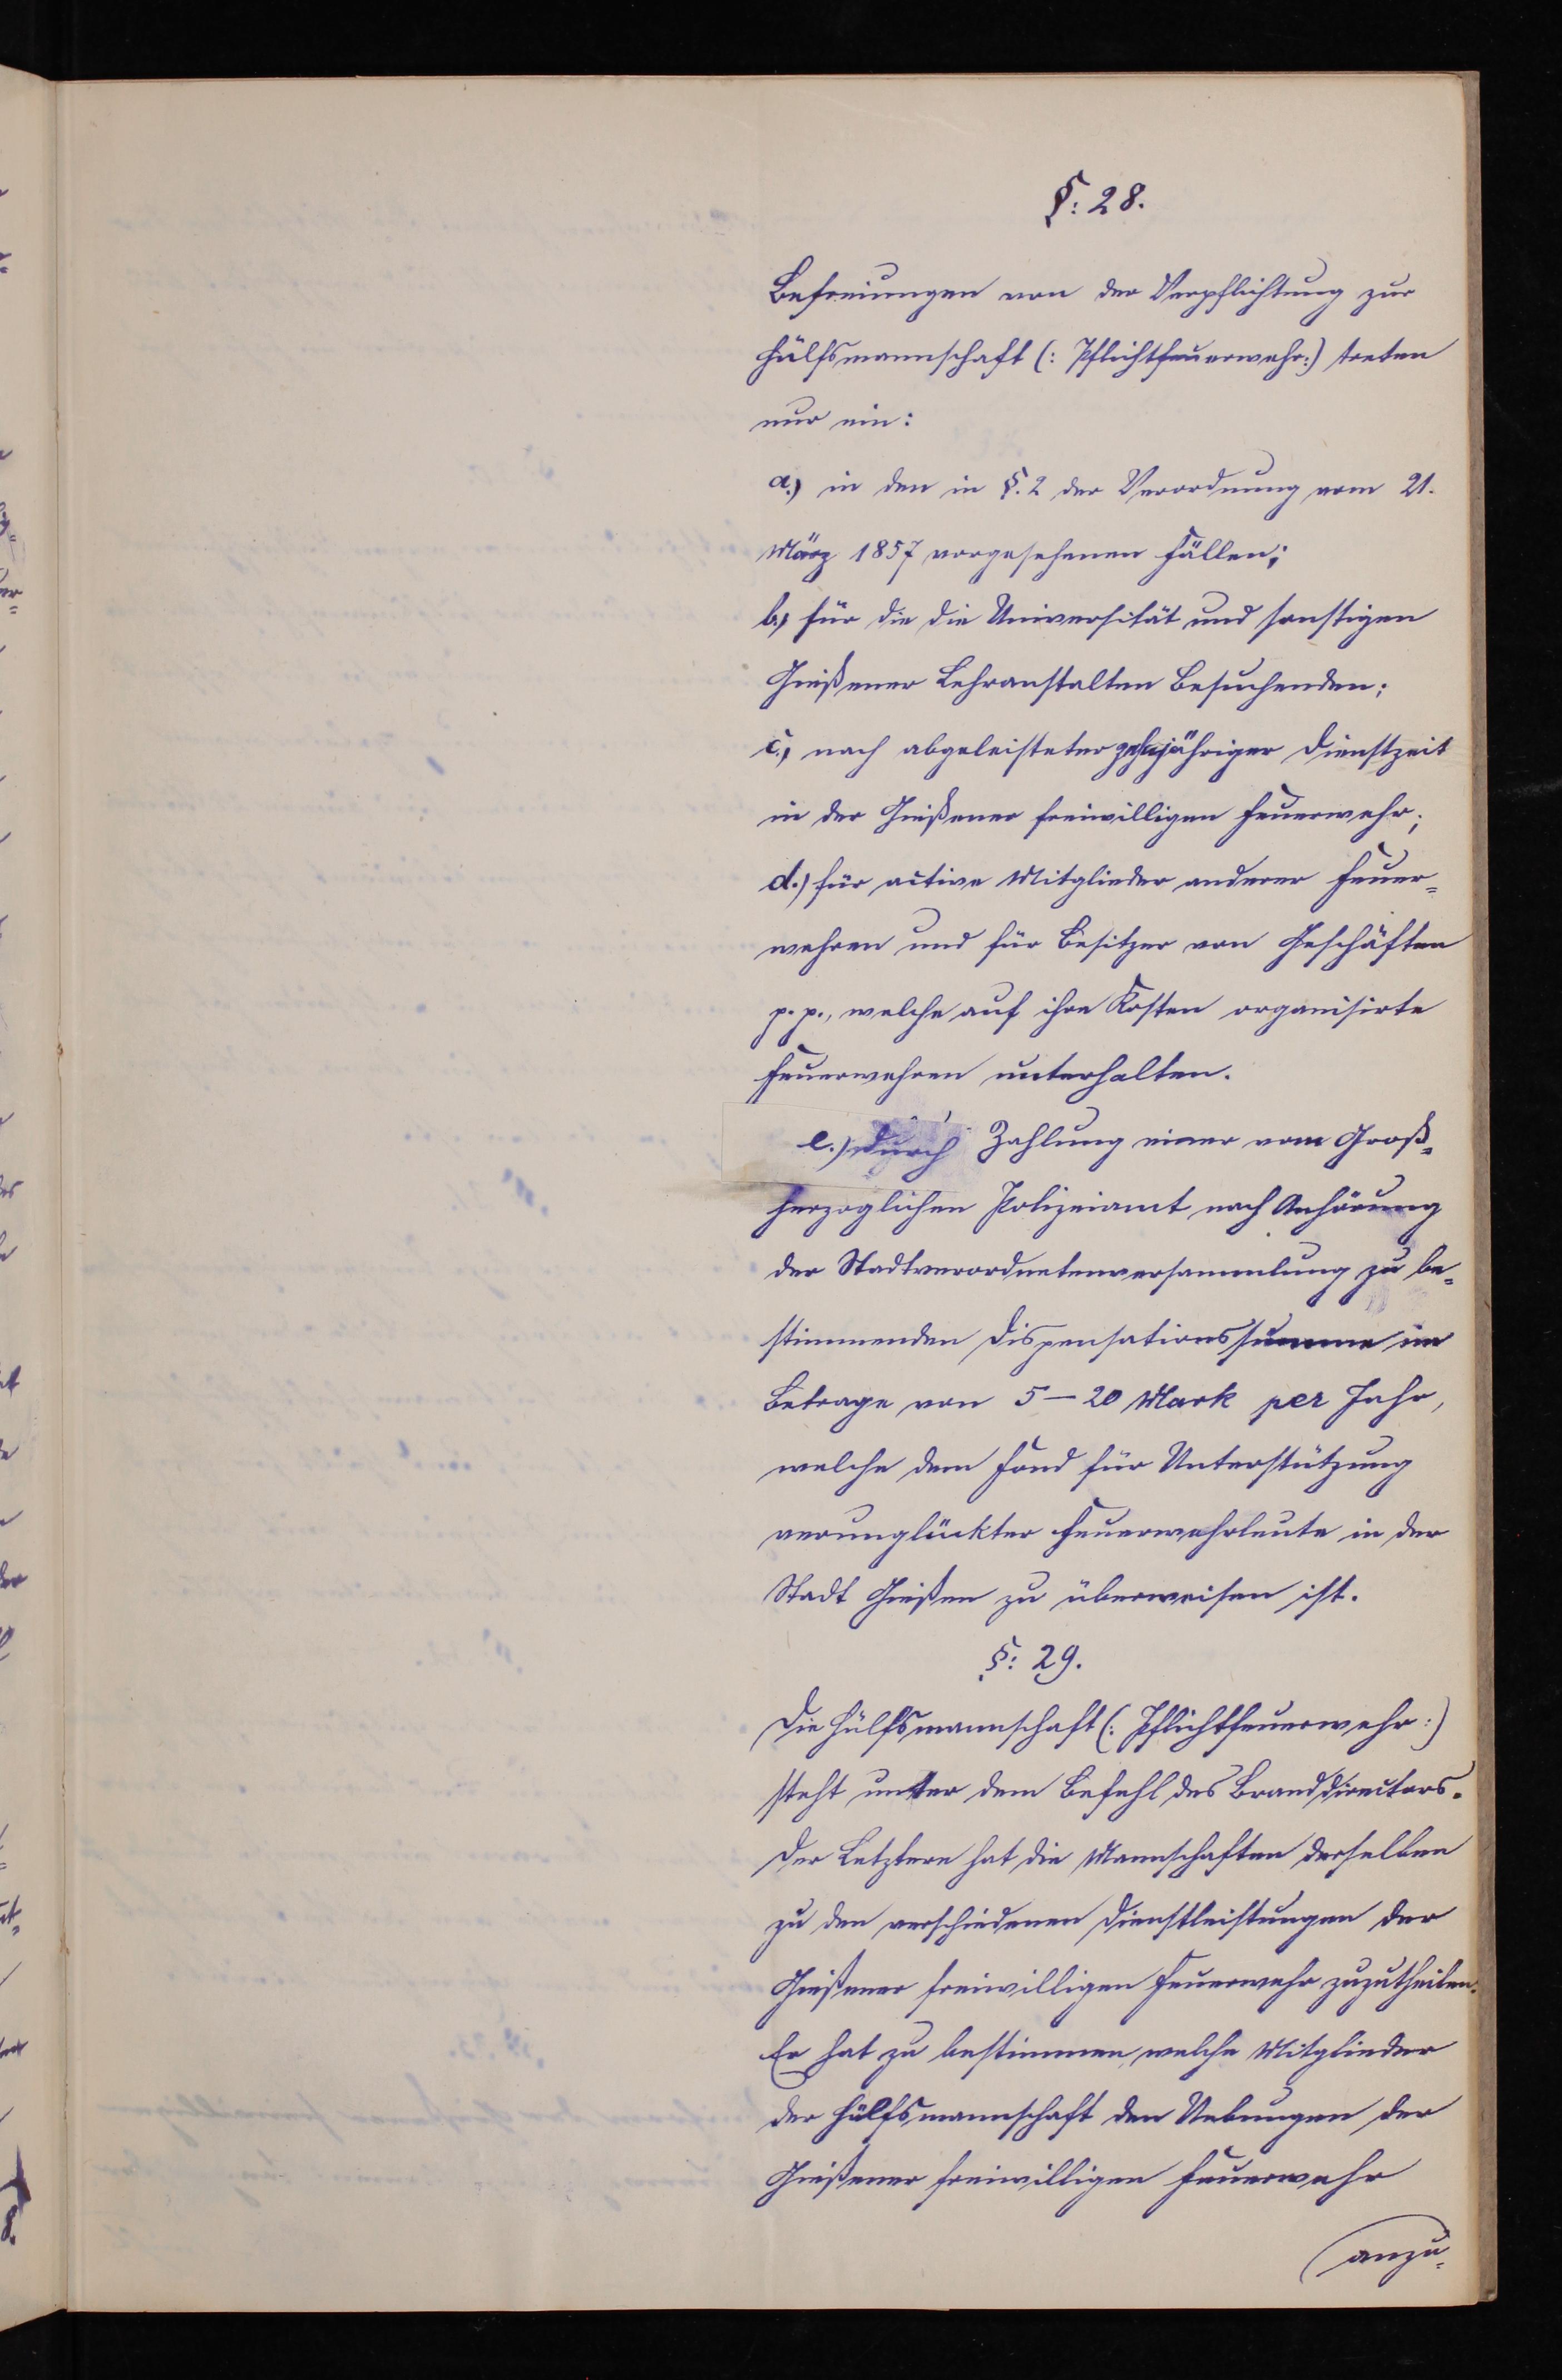 §: 28.
Befreiungen von der Verpflichtung zur
Hülfsmannschaft (: Pflichtfeuerwehr:) treten
nur ein:
a.) in den in §. 2 der Verordnung vom 21.
März 1857 vorgesehenen Fällen;
b.) für die die Universität und sonstigen
Gießener Lehranstalten Besuchenden;
c.) nach abgeleisteter zehnjähriger Dienstzeit
in der Gießener freiwilligen Feuerwehr;
d.) für active Mitglieder anderer Feuer=
wehren und für Besitzer von Geschäften
p. p., welche auf ihre Kosten organisirte
Feuerwehren unterhalten.
e.) durch Zahlung einer vom Groß=
herzoglichen Polizeiamt nach Anhörung
der Stadtverordnetenversammlung zu be=
stimmenden Dispensationssumme im
Betrage von 5 — 20 Mark per Jahr,
welche dem Fond für Unterstützung
verunglückter Feuerwehrleute in der
Stadt Gießen zu überweisen ist.
§: 29.
Die Hülfsmannschaft (: Pflichtfeuerwehr :)
steht unter dem Befehl des Branddirectors.
Der Letztere hat die Mannschaften derselben
zu den verschiedenen Dienstleistungen der
Gießener freiwilligen Feuerwehr zuzutheilen.
Er hat zu bestimmen, welche Mitglieder
der Hülfsmannschaft den Uebungen der
Gießener freiwilligen Feuerwehr
anzu=